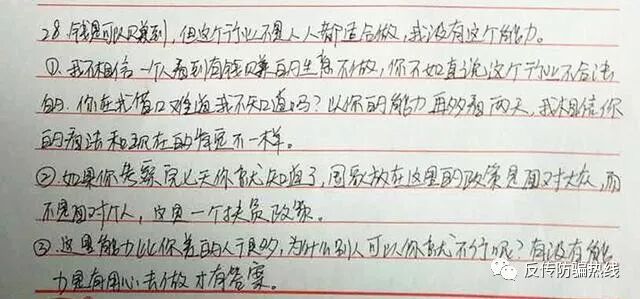 28.钱是可以赚到,但这个行业不是人人都适合做,我没有这个能力。
①.我不相信一个人看到有钱赚的生意不做,你不如直说这个行业不合法
的.你在找借口难道我不知道吗?以你的能力再多看两天,我相信你
的看法和现在的肯定不一样。
②.如果你考察完七天你就知道了,国家放在这里的政策是面对大众,而
不是面对个人,这是一个扶贫政策。
③.这里能力比你差的人很多,为什么别人可以你就不行呢?有没有能
力是有用心去做才有答案。
反传防骗热线